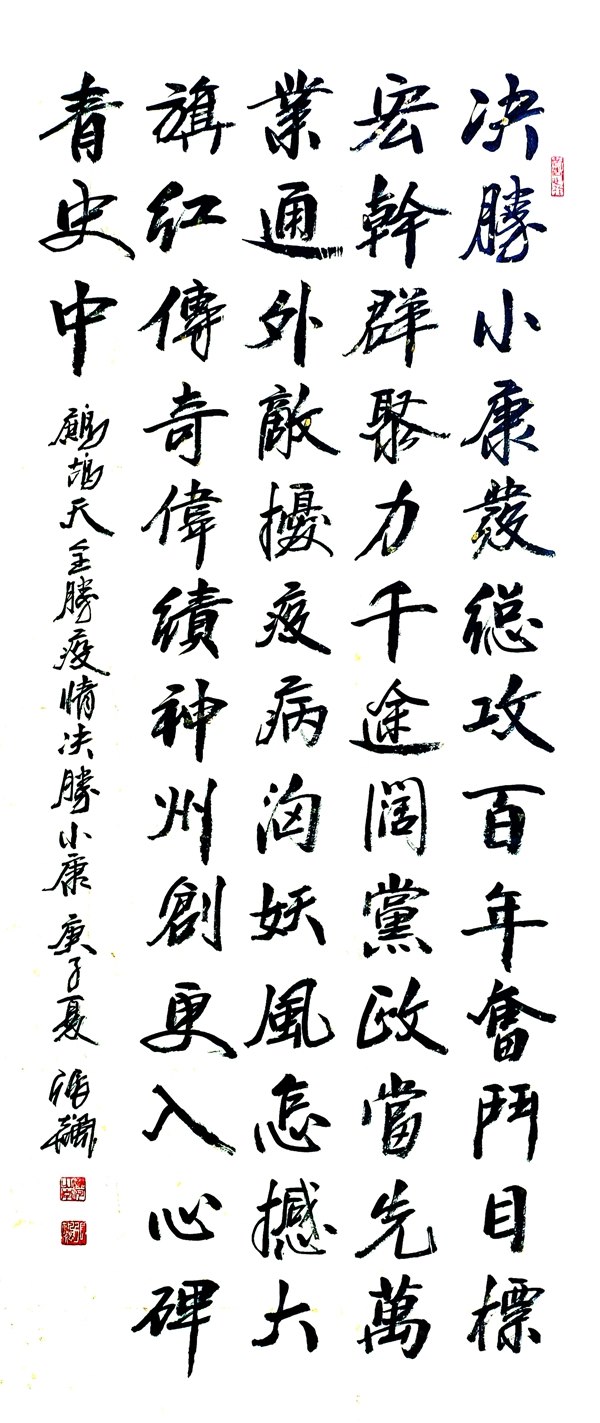 决勝小康發總攻百年奮鬥目標
宏幹群聚力千途闊黨政當先萬
業通外敵擾疫病洶妖風怎撼大
旗紅傳奇偉績神州創更入心碑
青史中
鷓鴣天全勝疫情决勝小康庚子夏張